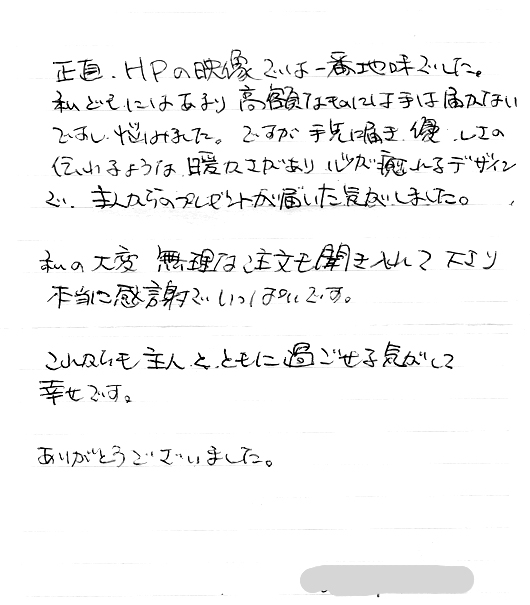 正直、HPの映像では一番地味でした。
私どもにはあまり高額なものには手は届かない
ですし悩みました。ですが手元に届き、優しさの
伝わるような、暖かさがあり心が癒れるデザイン
で、主人からのプレゼントが届いた気がしました。
私の大変無理な注文も聞き入れて下さり
本当に感謝でいっぱいです。
これからも主人と、ともに過ごせる気がして
幸せです。
ありがとうございました。